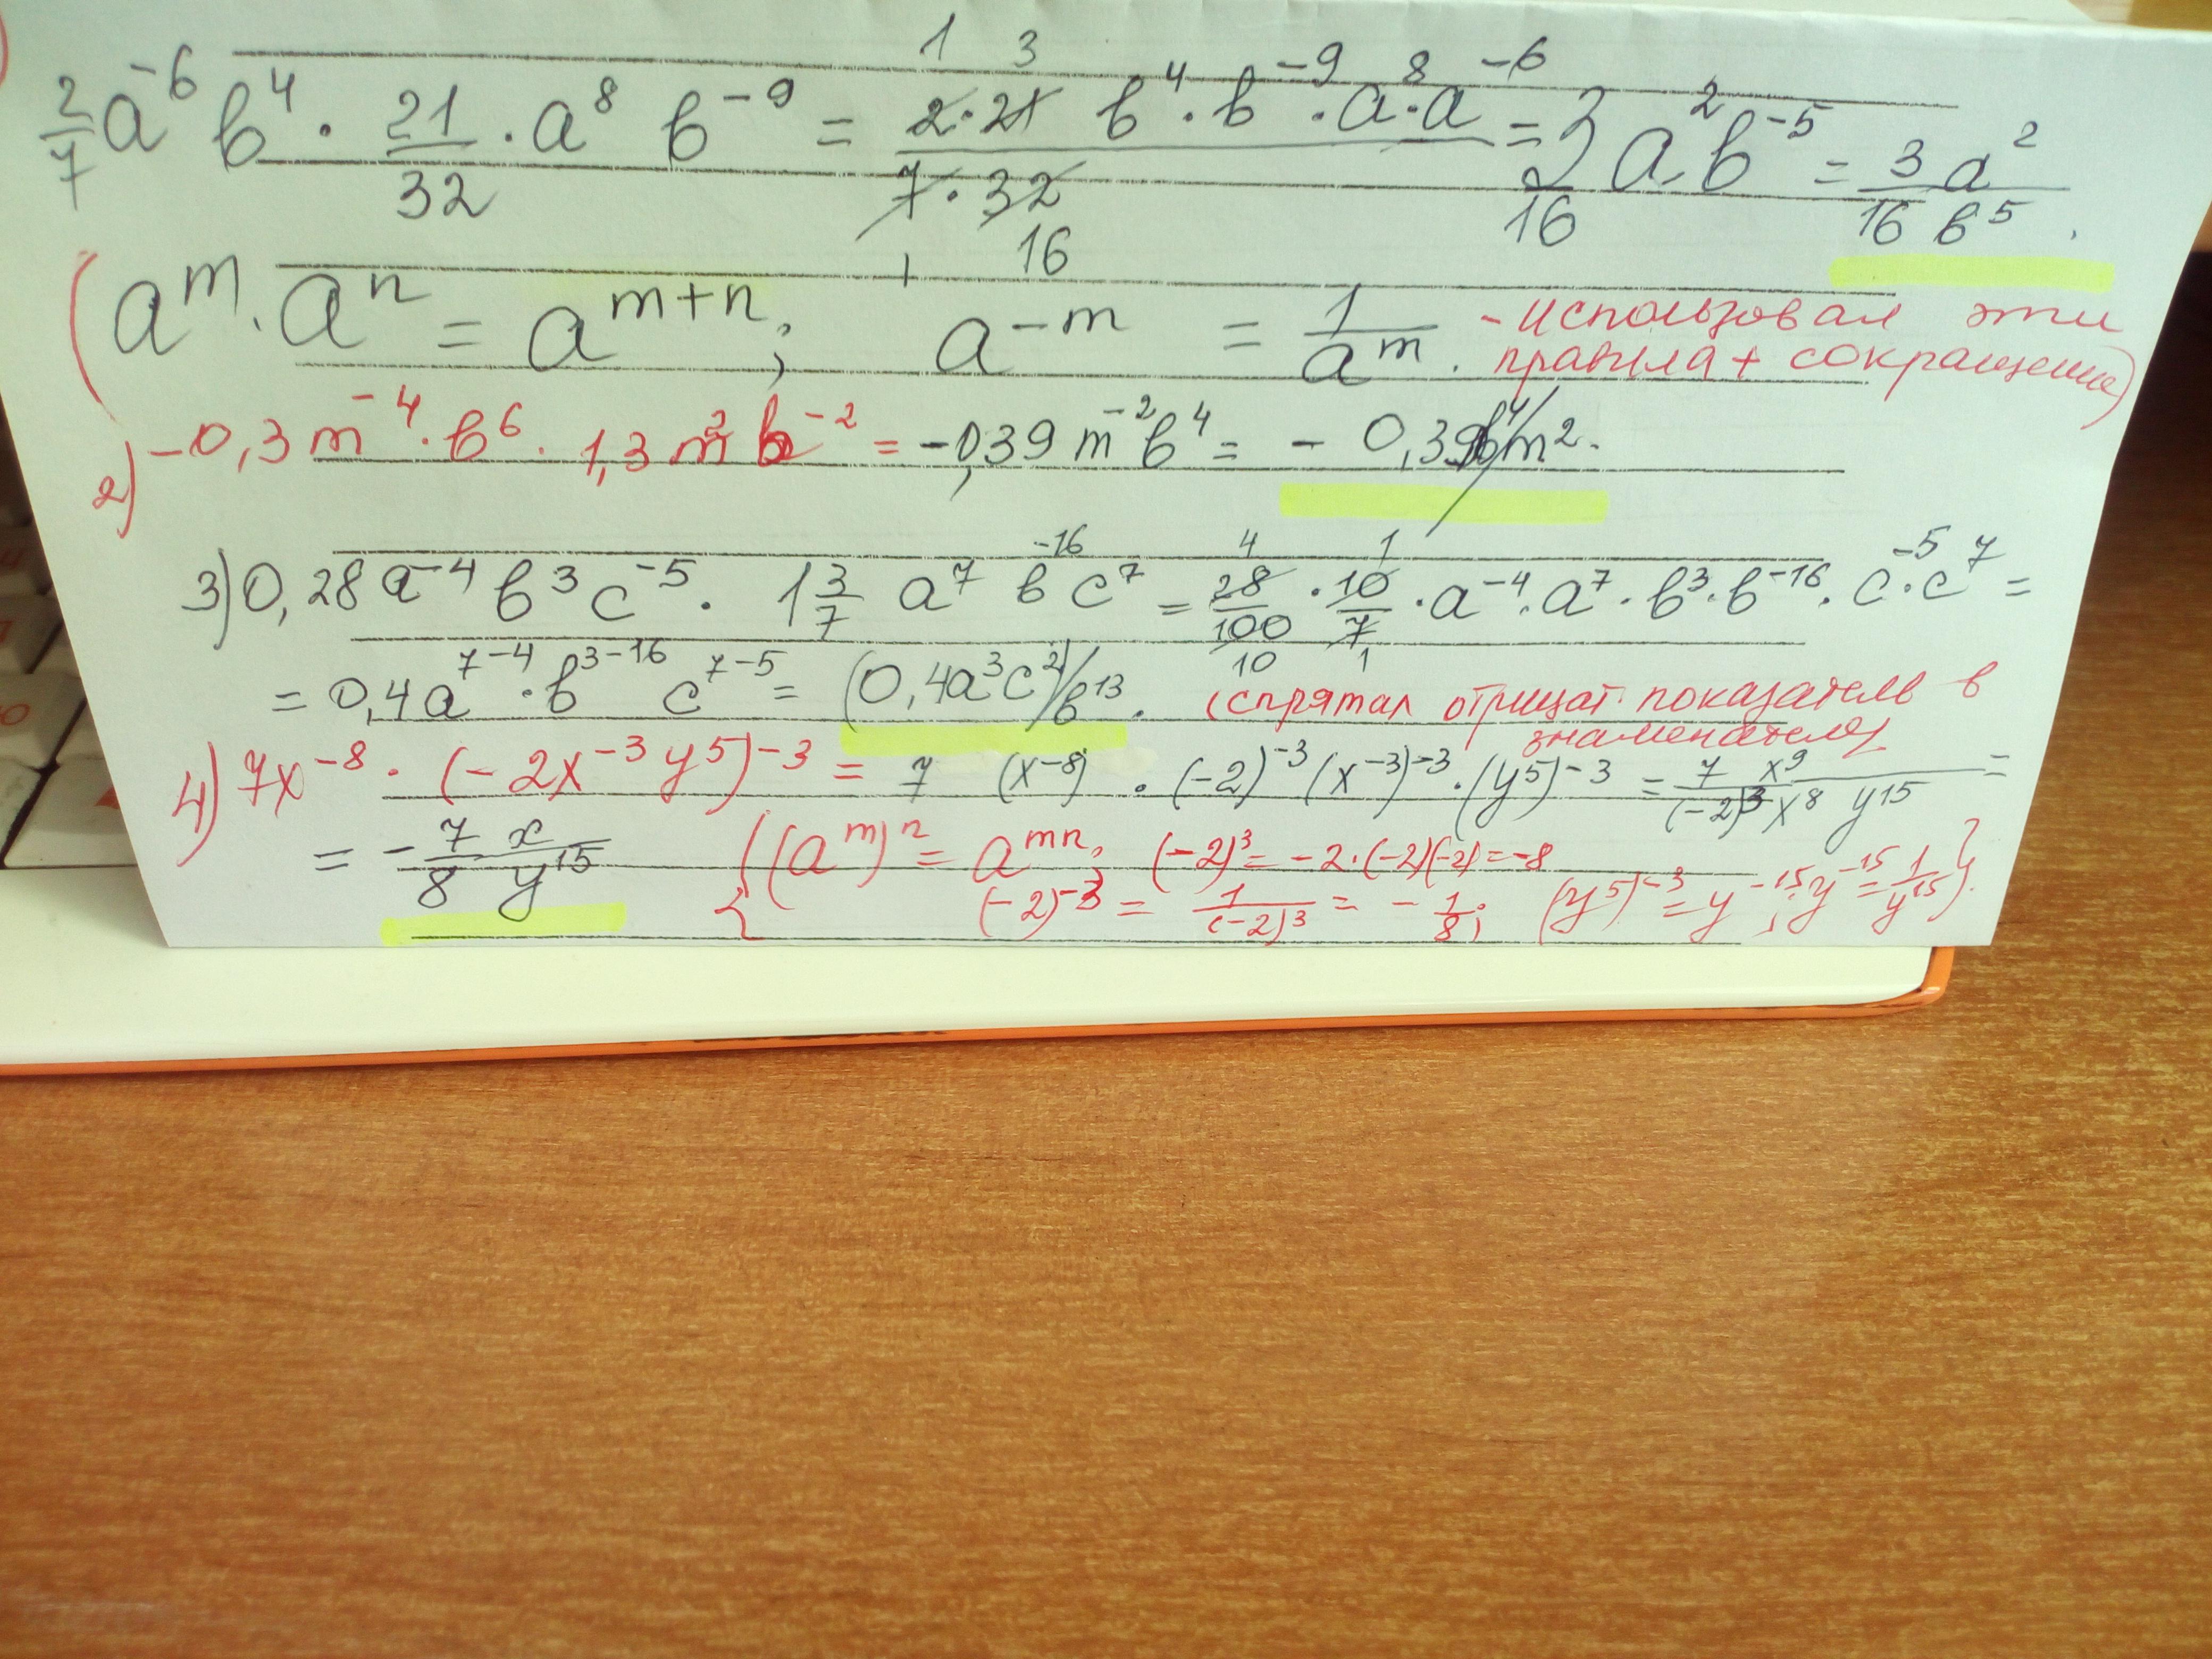 2/7 a⁻⁶ b⁴ · 21/32 · a⁸ b⁻⁹ = (2·21 b⁴·b⁻⁹·a⁸·a⁻⁶)/(7·32) = 3/16 a² b⁻⁵ = 3a²/16b⁵.
(aᵐ·aⁿ = aᵐ⁺ⁿ; a⁻ᵐ = 1/aᵐ. - Использовал эти
правила + сокращение)
2) -0,3m⁻⁴·b⁶ · 1,3m² b⁻² = -0,39 m⁻² b⁴ = - 0,39b⁴/m².
3) 0,28 a⁻⁴ b³ c⁻⁵ · 1 3/7 a⁷ b⁻¹⁶ c⁷ = 28/100 · 10/7 · a⁻⁴·a⁷·b³·b⁻¹⁶·c⁻⁵·c⁷ =
= 0,4a⁷⁻⁴·b³⁻¹⁶ c⁷⁻⁵ = (0,4a³c²)/b¹³. (спрятал отрицат. показатель в
знаменатель)
4) 7x⁻⁸ · (-2x⁻³y⁵)⁻³ = 7 (x⁻⁸) · (-2)⁻³(x⁻³)⁻³·(y⁵)⁻³ = 7 x⁹/(-2)³x⁸ y¹⁵ =
= - 7 x/8 y¹⁵ {(aᵐ)ⁿ = aᵐⁿ; (-2)³ = -2·(-2)(-2) = -8
(-2)⁻³ = 1/(-2)³ = - 1/8; (y⁵)⁻³ = y⁻¹⁵; y⁻¹⁵ = 1/y¹⁵}.